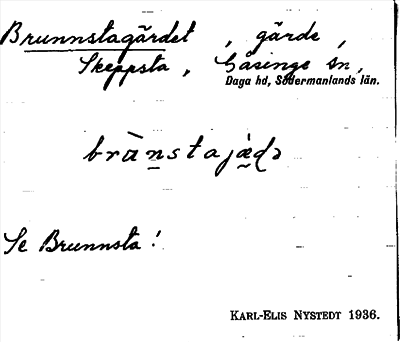 Brunnstagärdet, gärde,
Skeppsta, Gåsinge sn,
Daga hd, Södermanlands län.
brà̄n̠stajæ̀ḍə
Se Brunnsta!
KARL-ELIS NYSTEDT 1936.